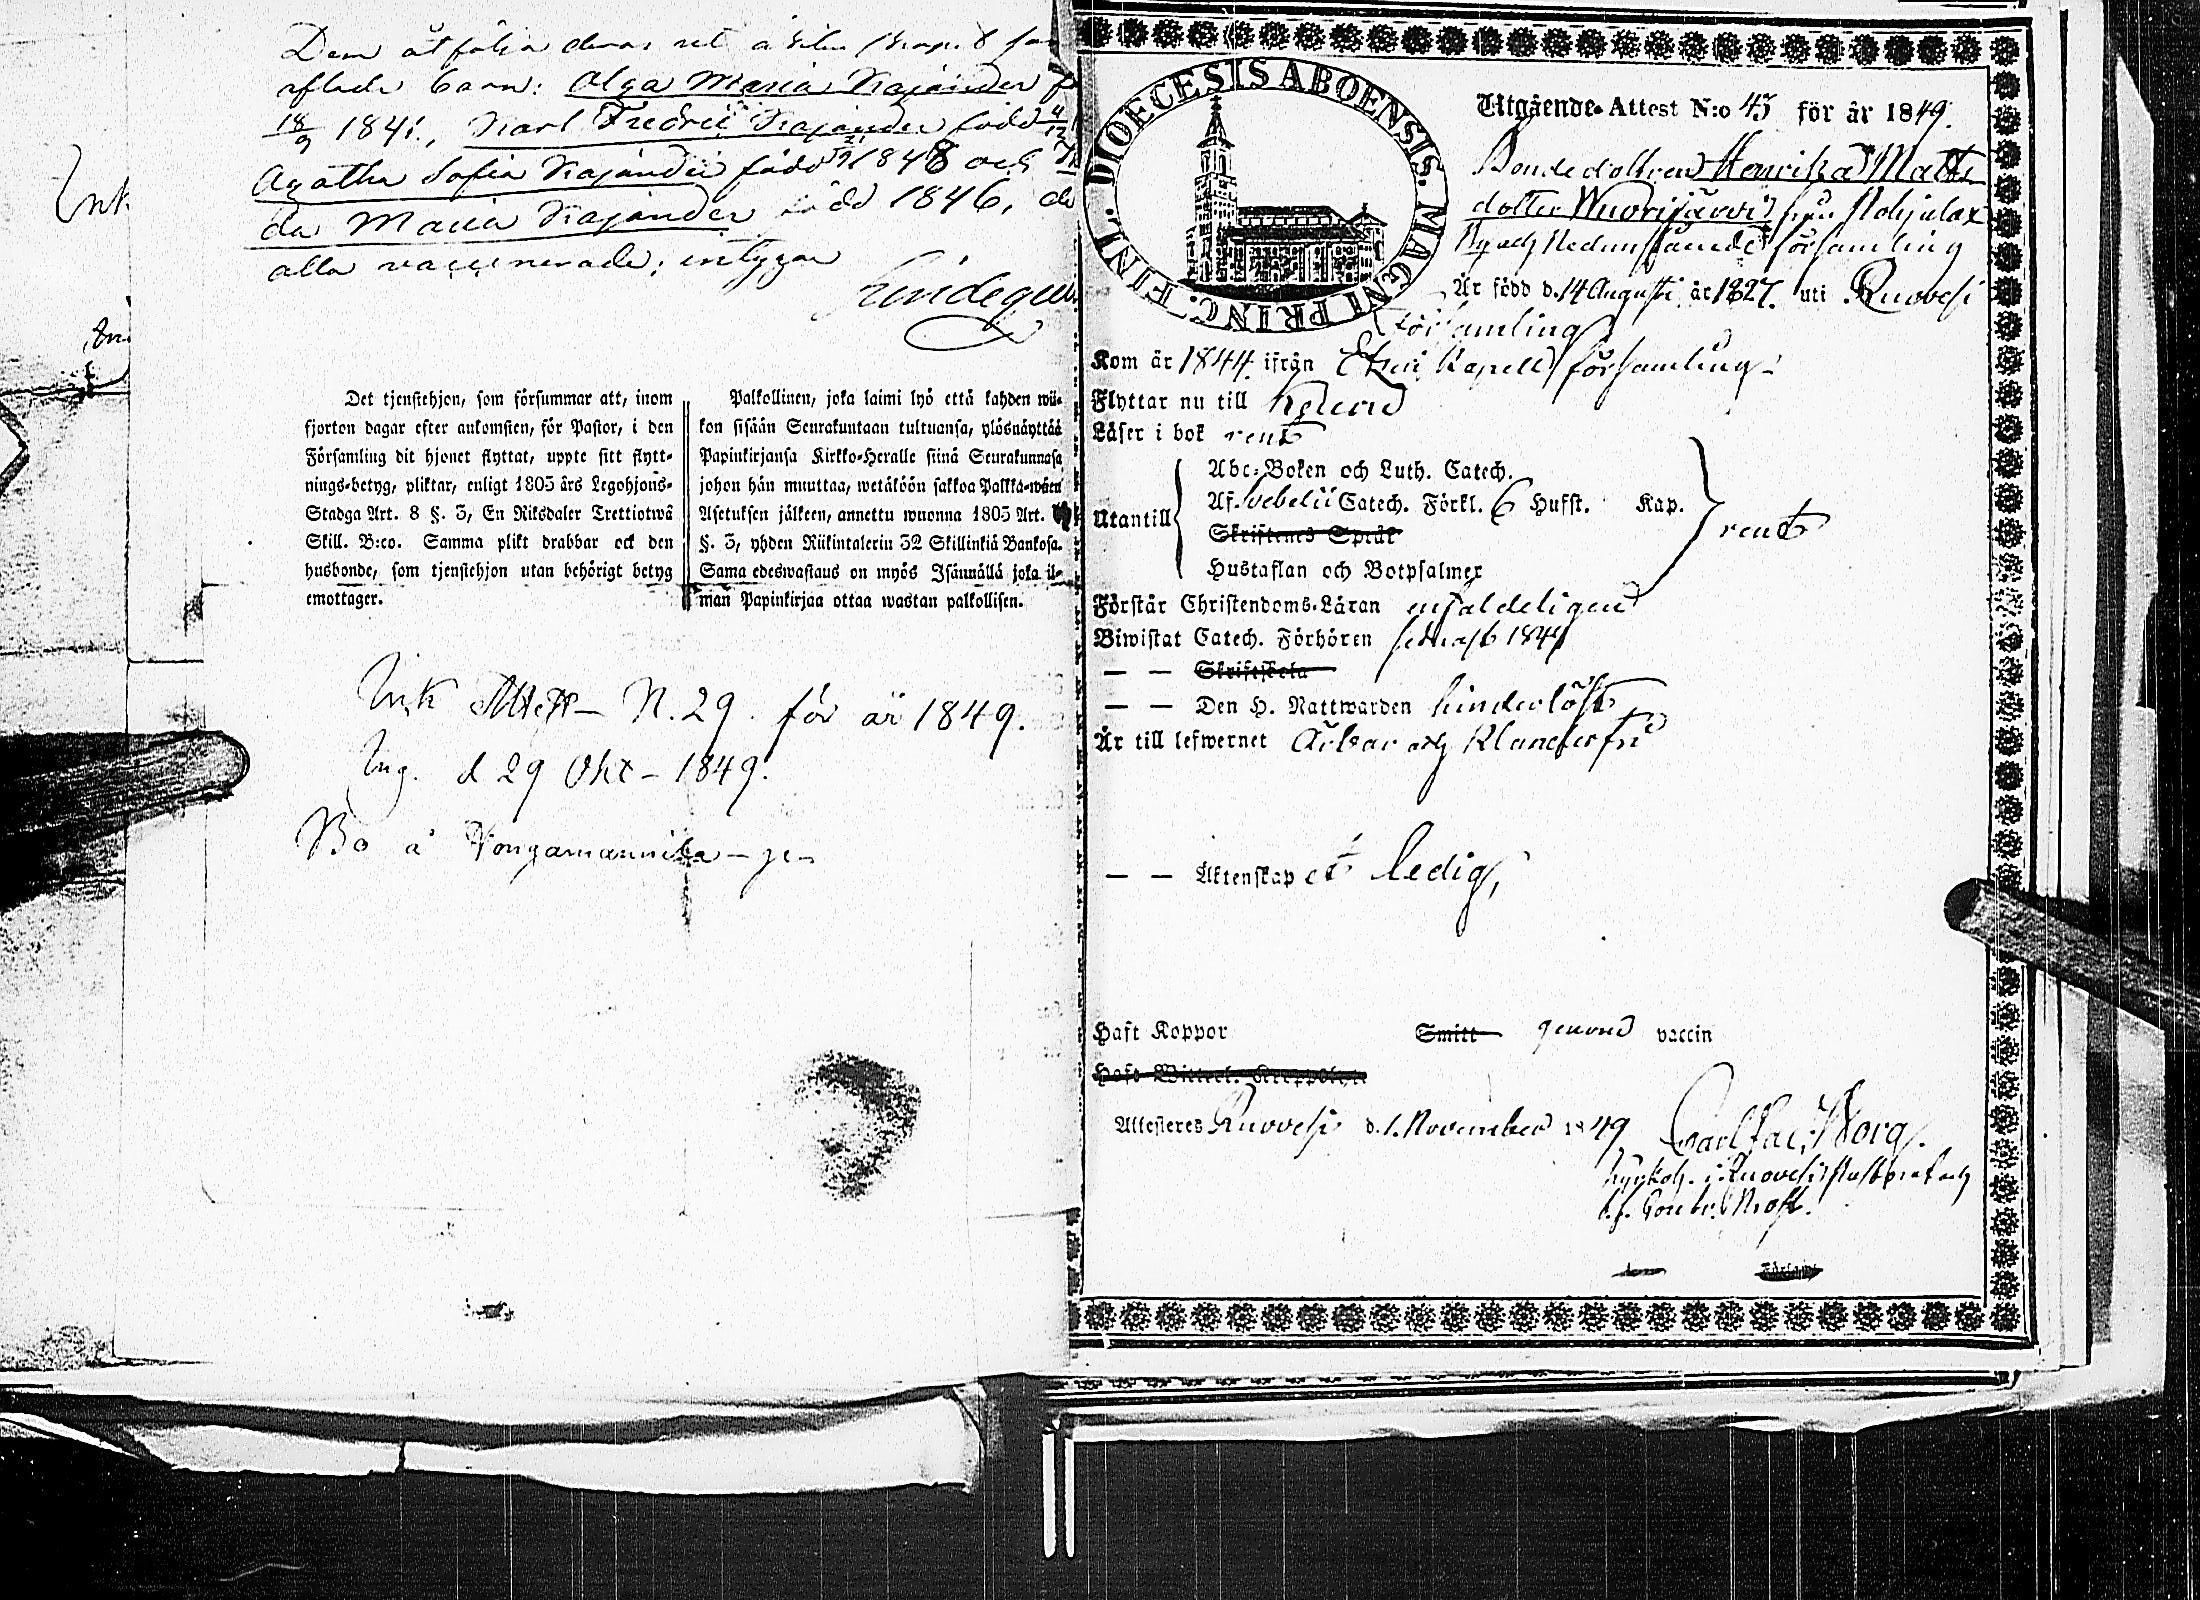 Dem åtfölja deras
aflade barn: Olga Maria Kajander
18/9 1841, Karl Fredric Kajander född
Agatha Sofia Kajander född 1848 och
da Maria Kajander född 1846,
alla vaccinerade; intygar
Lindegren
Det tjenstehjon, som försummar att, inom
fjorton dagar efter ankomsten, för Pastor, i den
Församling dit hjonet flyttat, uppte sitt flytt-
nings-betyg, pliktar, enligt 1805 års Legohjons-
Stadga Art. 8 §. 3, En Riksdaler Trettiotwå
Skill. B:co. Samma plikt drabbar ock den
husbonde, som tjenstehjon utan behörigt betyg
emottager.
Palkollinen, joka laimi lyö että kahden wii-
kon sisään Seurakuntaan tultuansa, ylösnäyttää
Papinkirjansa Kirkko-Herralle siinä Seurakunnasa
johon hän muuttaa, wetäköön sakkoa Palkka-wäen
Asetuksen jälkeen, annettu wuonna 1805 Art.
§. 3, yhden Riikintalerin 32 Skillinkiä Bankosa.
Sama edeswastaus on myös Isännällä joka il-
man Papinkirjaa ottaa wastan palkollisen.
Ink Attest N. 29. för år 1849.
Ing. d 29 Okt- 1849.
Bo å
DIOECESIS ABOENSIS. MAGNI PRINC. FINL.
Utgående-Attest N:o 43 för år 1849.
Bondedottren Henrika Matts
dotter Wuorijärvi från Pohjulax
By och Nedanstående församling
Är född d. 14 Augusti år 1827. uti Ruovesi
församling
Kom år 1844 ifrån Etseri Kapell församling
Flyttar nu till Kylund
Läser i bok rent
Utantill
Abc-Boken och Luth. Catech.
Af. Svebelii Catech. Förkl. 6 Hufst. Kap.
Skriftenes Språk
Hustaflan och Botpsalmer
rent
Förstår Christendoms-Läran enfaldeligen
Biwistat Catech. Förhören sednast 1849
— — Skriftskola
— — Den H. Nattwarden hinderlöst
Är till lefwernet Ärbar och Klanderfri
— — Äktenskap et ledig,
Haft Koppor Smitt genom vaccin
Attesteres Ruovesi d. 1. November 1849 Carl Jac: Borg.
Kyrkoh. i Ruovesi